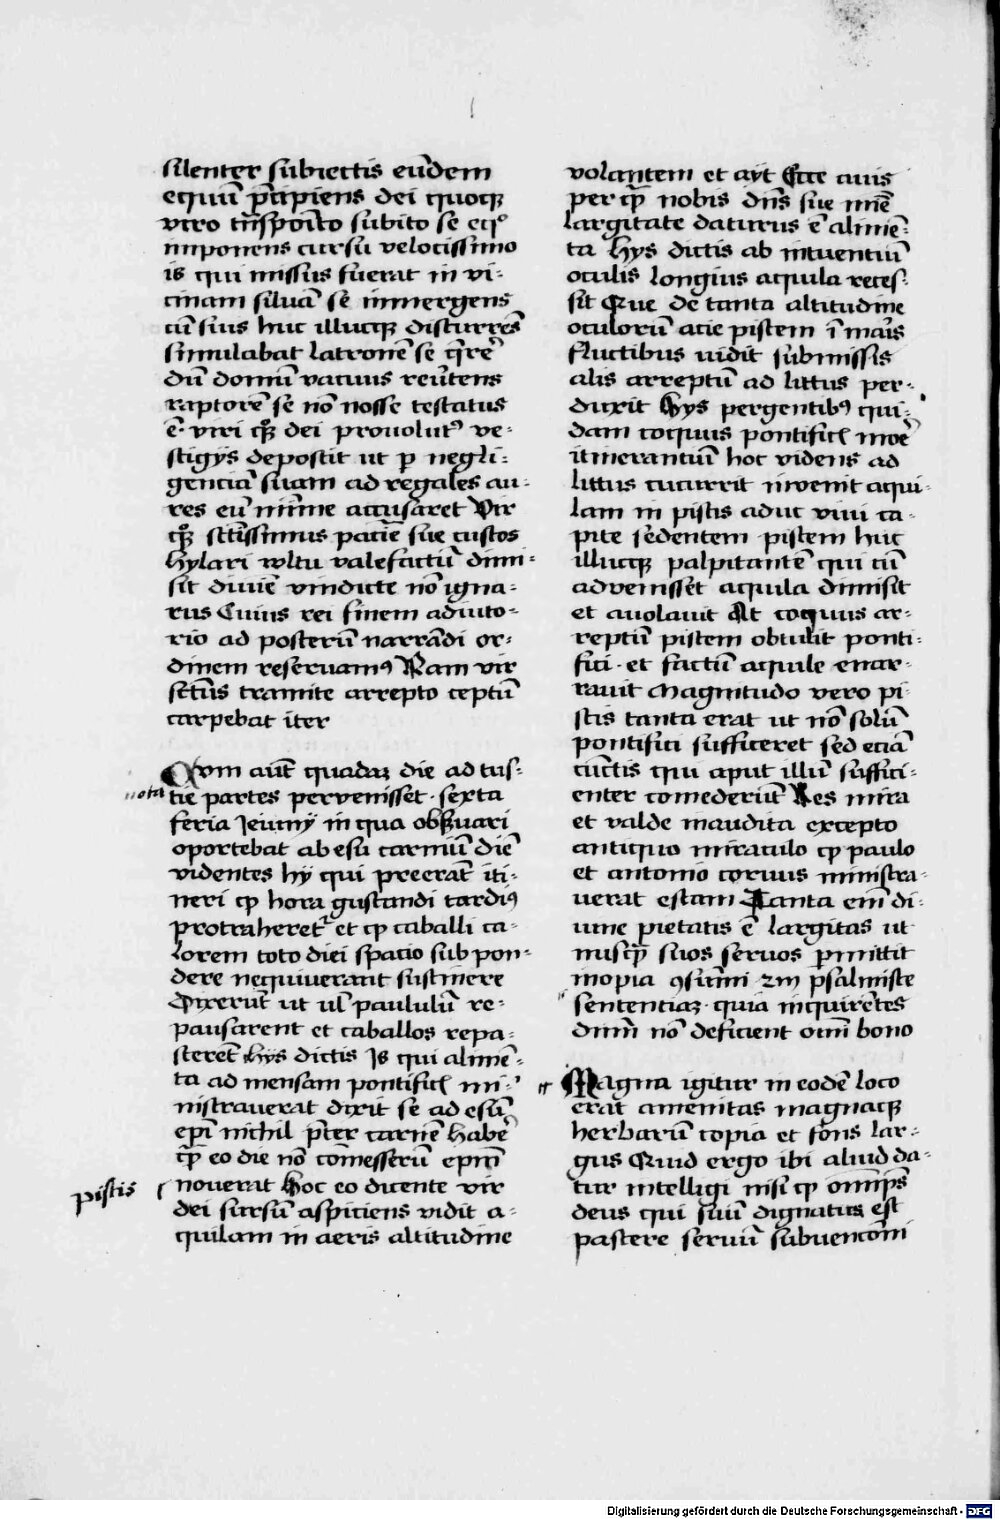 silenter subiectis eūdem
equū p̄cipiens dei quoqꝫ
viro tn̄sposito subito se eqͦ
imponens cursu velocissimo
is qui missus fuerat in vi-
cinam siluā se immergens
cū suis huc illucqꝫ discurrēs
simulabat latronē se q̄rē
dū domū vacuus reūtens
raptorē se nō nosse testatus
ē· viri qꝫ dei prouolutꝰ ve-
stigijs deposcit ut ꝑ negli-
genciā suam ad regales au-
res eū minime accusaret Vir
qꝫ sctīssimus pacīe sue custos
hylari vultu valefactū dimi-
sit diuīe vindicte nō igna-
rus Cuius rei finem adiuto-
rio ad posterū narrādi or-
dinem reseruamꝰ Nam vir
sctūs tramite arrepto ceptū
carpebat iter
Qvm aūt quadaꝫ die ad tus-
nota
cie partes pervenisset · sexta
feria Jeiunij in qua obꝫuari
oportebat ab esu carniū diē
videntes hij qui preerāt iti-
neri ꝙ hora gustandi tardiꝰ
protraheret᷑ et ꝙ caballi ca-
lorem toto diei spacio sub pon-
dere nequiuerant sustinere
Dixerūt ut ul̄ paululū re-
pausarent et caballos repa-
scerēt Hys dictis Js qui alimē-
ta ad mensam pontificꝭ mi-
nistrauerat dixit se ad esū
epī nichil p̄ter carnē habē
q̄ꝫ eo die nō cōmesserū epm̄
piscis
nouerat Hoc eo dicente vir
dei sursū aspiciens vidit a-
quilam in aeris altitudine
volantem et ayt Ecce auis
per q̄ꝫ nobis dn̄s sue imē
largitate daturus ē alimē-
ta Hys dictis ab intuentiū
oculis longius aquila reces-
sit Que de tanta altitudine
oculorū acie piscem ī māis
fluctibus uidit submissis
alis arreptū ad littus per-
duxit Hys pergentibꝰ qui-
dam coquus pontificꝭ moē
itinerantiū hoc videns ad
littus cucurrit inuenit aqui-
lam in piscis aduc viui ca-
pite sedentem · piscem huc
illucqꝫ palpitantē qui cū
advenisset aquila dimisit
et auolauit At coquus ar-
reptū piscem obtulit ponti-
fici · et factū aquile enar-
rauit Magnitudo vero pi-
scis tanta erat ut nō solū
pontifici sufficeret sed eciā
cūctis qui aput illū suffici-
enter comederūt Res mira
et valde inaudita excepto
antiquo miraculo ꝙ paulo
et antonio coruus ministra-
uerat escam Tanta em̄ di-
uine pietatis ē largitas ut
nusq̄ꝫ suos seruos ꝑmittit
inopia ꝯsūmi 2m psalmiste
sentenciaꝫ · quia inquirētes
dnm̄ nō deficient om̄i bono
Magna igitur in eodē loco
erat amenitas magnaqꝫ
herbarū copia et fōns lar-
gus Quid ergo ibi aliud da-
tur intelligi nisi ꝙ omīps̄
deus qui suū dignatus est
pascere seruū subuencōni
Digitalisierung gefördert durch die Deutsche Forschungsgemeinschaft - DFG